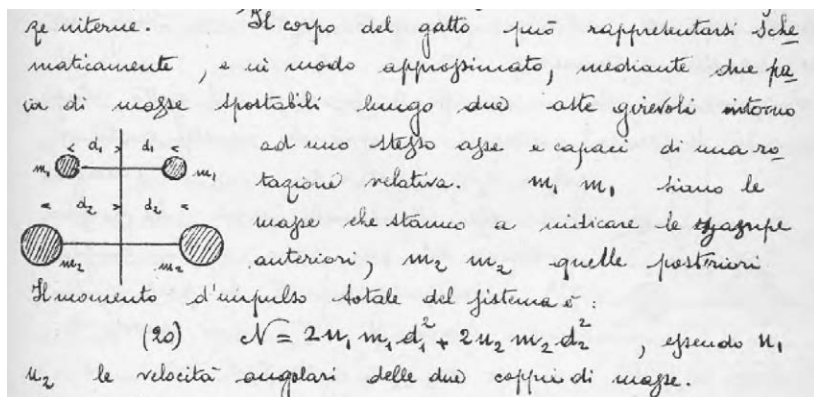 ze interne. Il corpo del gatto può rappresentarsi sche
maticamente, e in modo approssimato, mediante due pa
ia di masse spostabili lungo due aste girevoli intorno
< d₁ > d₁ < ad uno stesso asse e capaci di una ro
m₁ m₁ tazione relativa. m₁ m₁ siano le
< d₂ > d₂ < masse che stanno a indicare le zampe
m₂ m₂ anteriori, m₂ m₂ quelle posteriori
Il momento d'impulso totale del sistema è:
(20) N = 2u₁ m₁ d₁² + 2u₂ m₂ d₂², essendo u₁
u₂ le velocità angolari delle due coppie di masse.